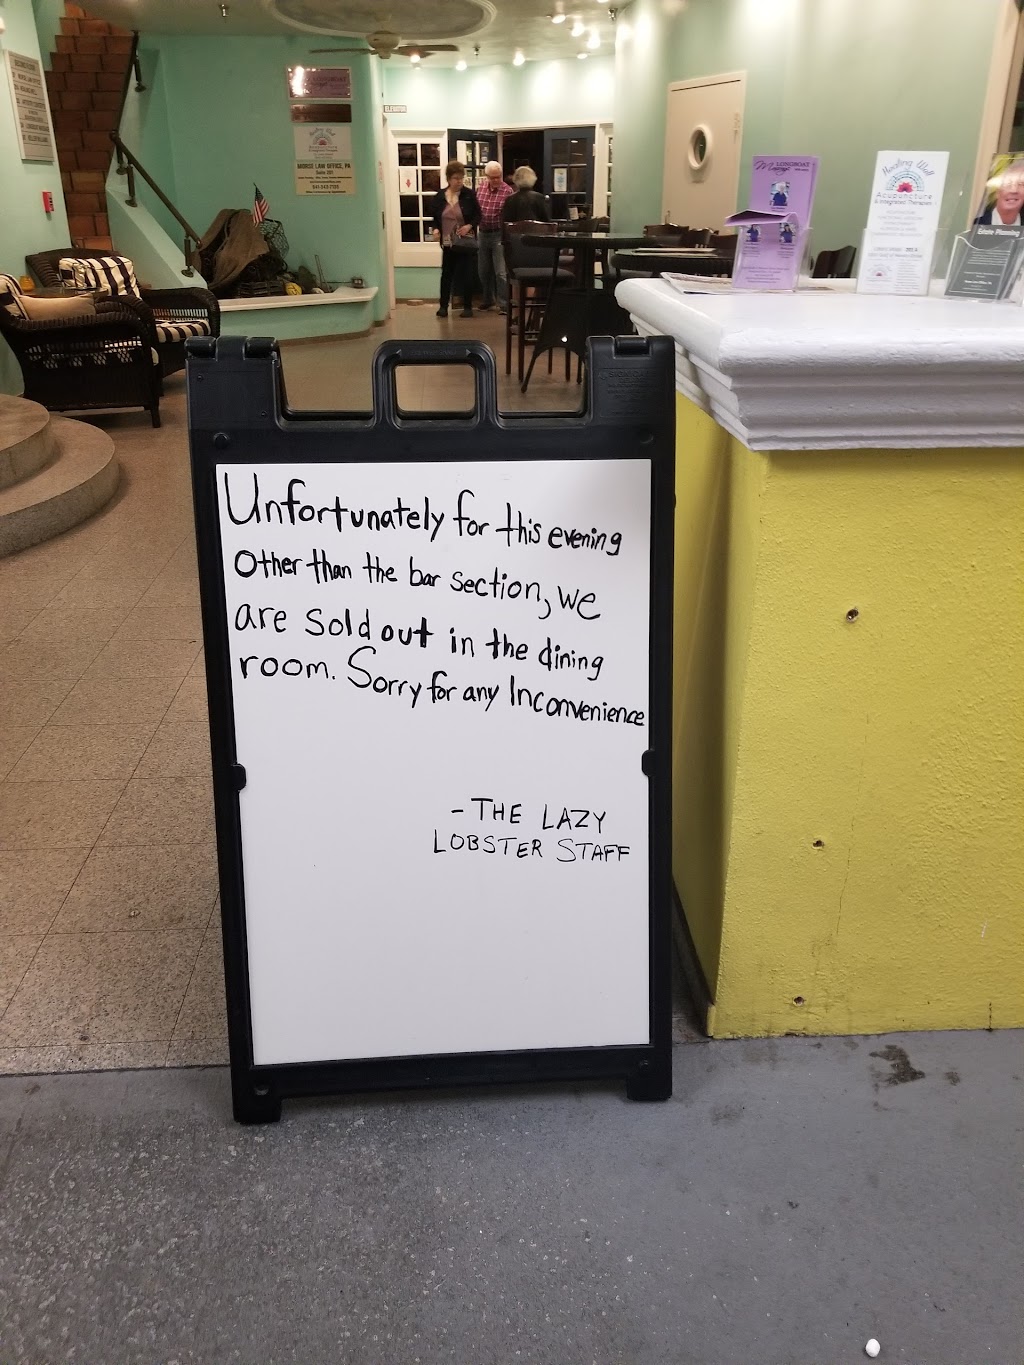 Unfortunately for this evening
Other than the bar section, we
are sold out in the dining
room. Sorry for any Inconvenience
- THE LAZY
LOBSTER STAFF
LONGBOAT
Massage
Healing Well
Acupuncture
& Integrated Therapies
Estate Planning
MORSE LAW OFFICE, PA